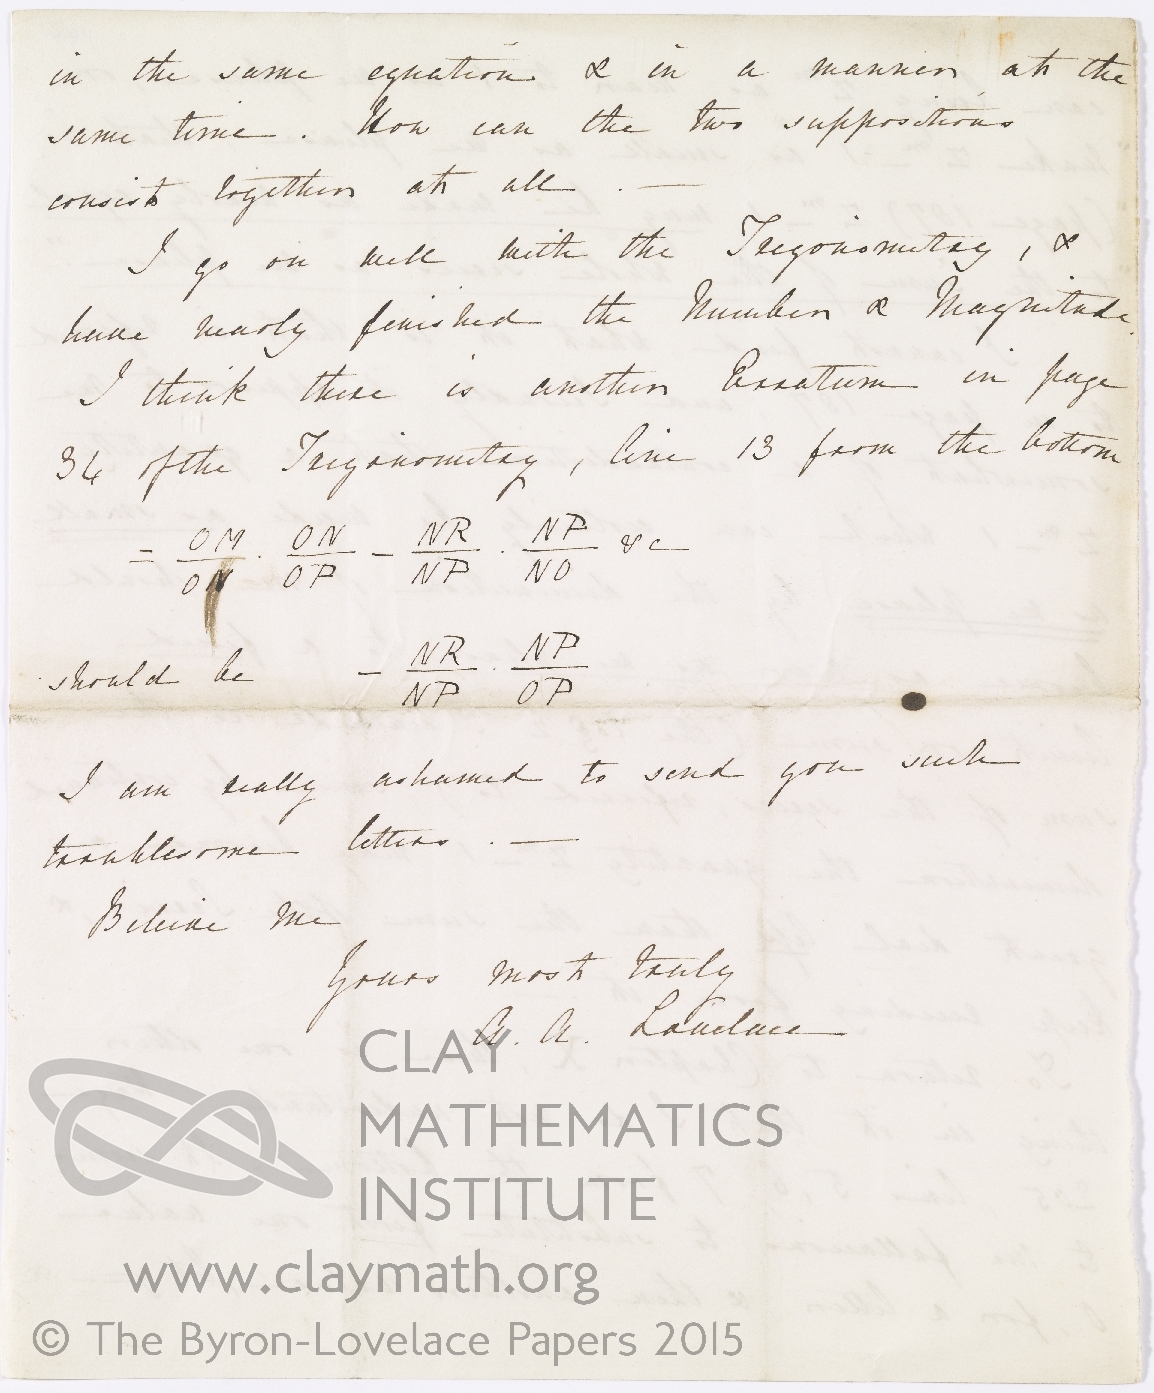 in the same equation & in a manner at the
same time. How can the two suppositions
consist together at all. —
I go on well with the Trigonometry, &
have nearly finished the Number & Magnitude.
I think there is another Erratum in page
34 of the Trigonometry, line 13 from the bottom
= OM/ON . ON/OP - NR/NP . NP/NO &c
should be - NR/NP . NP/OP
I am really ashamed to send you such
troublesome letters. —
Believe me
Yours most truly
A. A. Lovelace
CLAY
MATHEMATICS
INSTITUTE
www.claymath.org
© The Byron-Lovelace Papers 2015